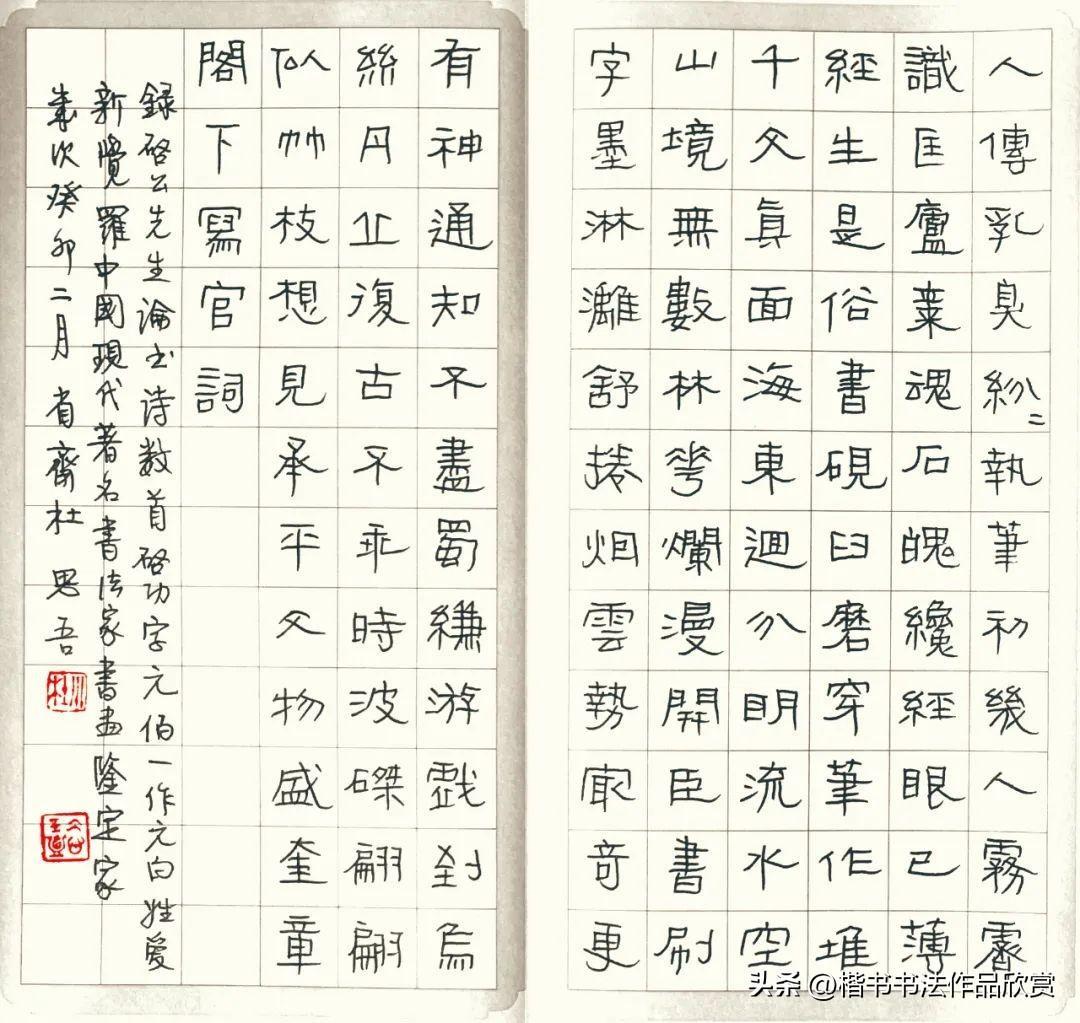 人傳乳臭紛〻執筆初幾人霧霽
識匡廬棗魂石魄纔經眼已薄
經生是俗書硯臼磨穿筆作堆
千文真面海東迴分明流水空
山境無數林花爛漫開臣書刷
字墨淋灕舒捲烟雲勢最奇更
有神通知不盡蜀縑游戲到烏
絲丹丘復古不乖時波磔翩翩
似竹枝想見承平文物盛奎章
閣下寫官詞
録啓公先生論书诗数首啓功字元伯一作元白姓爱
新覺羅中國現代著名書法家書画鉴定家
歲次癸卯二月 省齋杜思吾
头条 @楷书书法作品欣赏